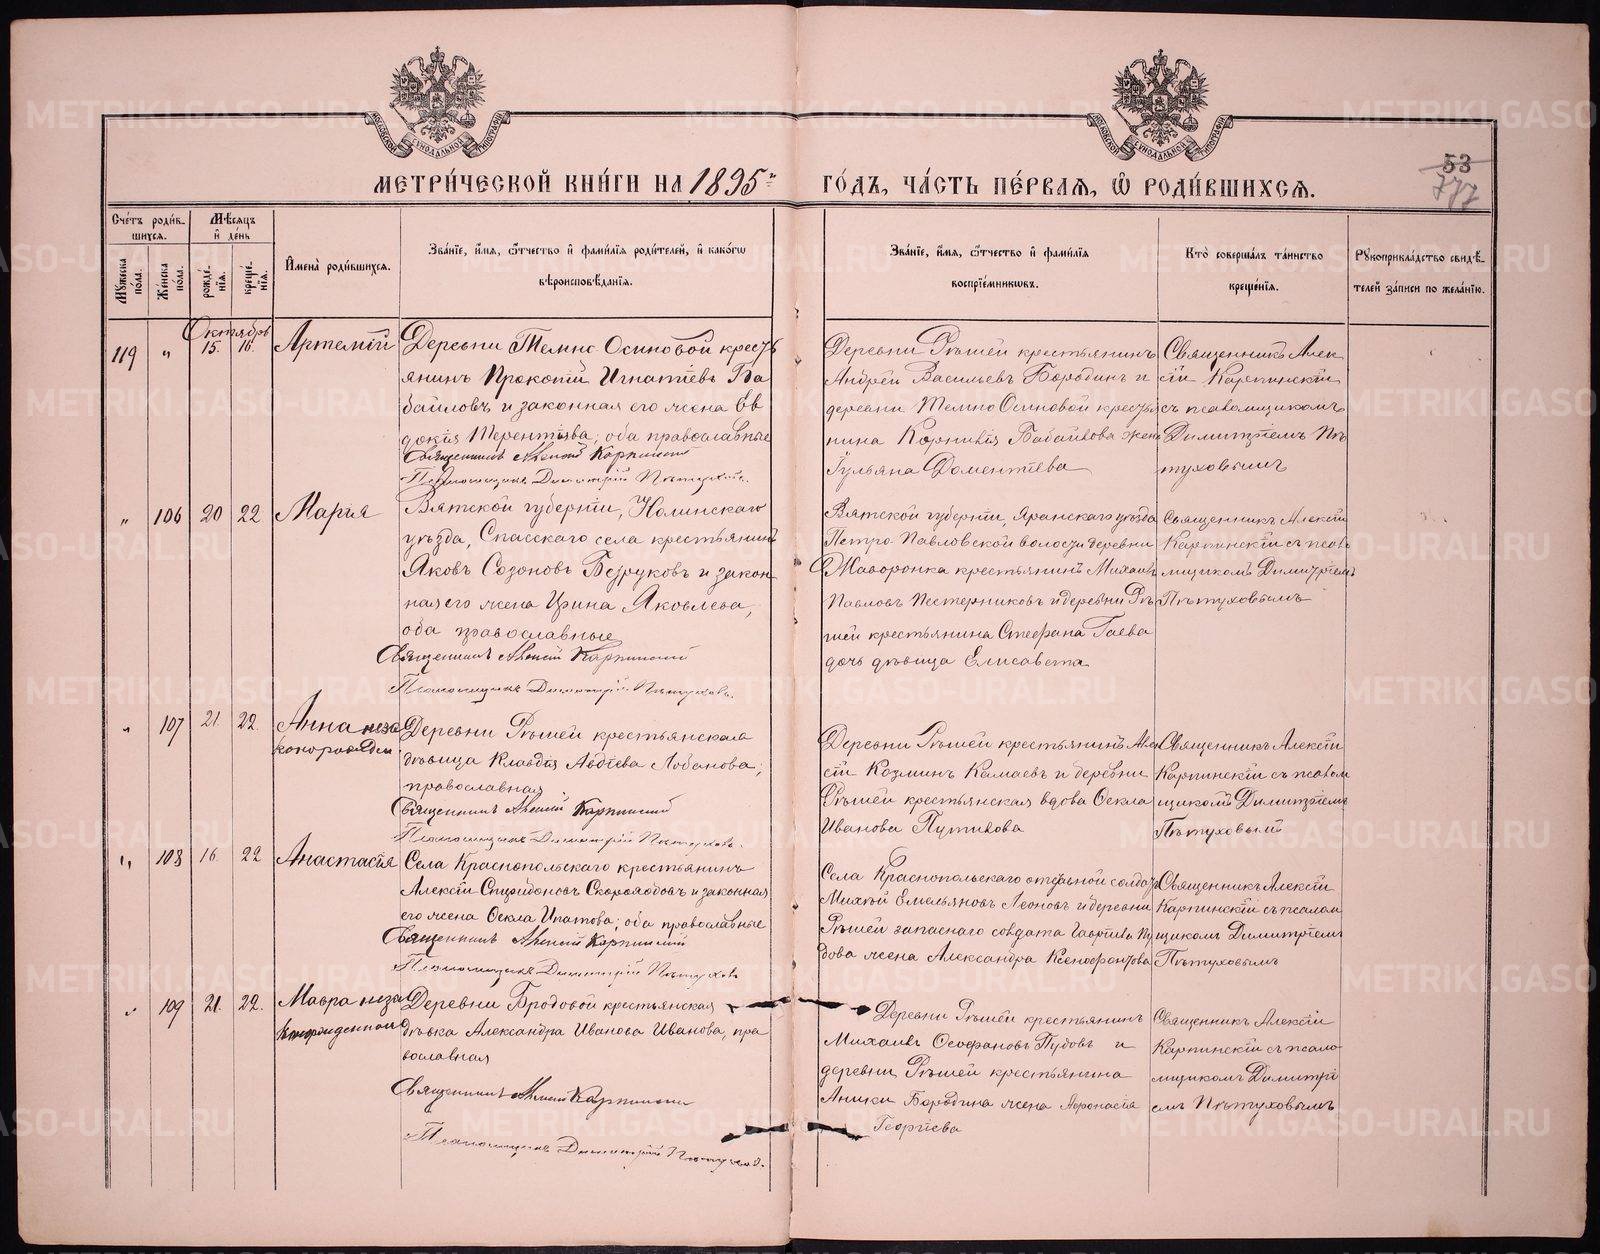 МЕТРИ́ЧЕСКОЙ КНИ́ГИ НА 1895й
ГО́ДЪ, ЧА́СТЬ ПЕ́РВАЯ, Ѡ РОДИ́ВШИХСЯ.
53
777
Сче́тъ роди́в-
шихся.
Мѣ́сяцъ
и́ де́нь
Му́жеска по́ла.
Же́нска по́ла.
рожде́нїя.
креще́нїя.
И҆мена̀ роди́вшихся.
Зва́нїе, и҆́мя, ѻ҆́тчество и҆ фами́лїя роди́телей, и҆ како́гѡ
вѣроисповѣ́данїя.
Зва́нїе, и҆́мя, ѻ҆́тчество и҆ фами́лїя
воспрїе́мникѡвъ.
Кто̀ соверша́лъ та́инство
креще́нїя.
Рꙋкоприкла́дство свидѣ́-
телей за́писи по жела́нїю.
Октябрь
119 " 15. 16. Артемій
Деревни Темно-Осиновой кресть
янинъ Прокопій Игнатіевъ Ба
байловъ и законная его жена Ев
докія Терентіева; оба православные
Священникъ Алексій Карпинскій
Псаломщикъ Димитрій Пѣтуховъ.
Деревни Рѣшей крестьянинъ
Андрей Васильевъ Бородинъ и
деревни Темно Осиновой крестья
нина Корнилія Бабайлова жена
Іульяна Доментіева
Священникъ Алек
сій Карпинскій
съ псаломщикомъ
Димитріемъ Пѣ
туховымъ
" 106 20 22 Марія
Вятской губерніи, Нолинскаго
уѣзда, Спасскаго села крестьянинъ
Яковъ Созоновъ Безруковъ и закон
ная его жена Ирина Яковлева,
оба православные
Священникъ Алексій Карпинскій
Псаломщикъ Димитрій Пѣтуховъ.
Вятской губерніи, Яранскаго уѣзда
Петро-Павловской волости деревни
Жаворонка крестьянинъ Михаилъ
Павловъ Пестерниковъ и деревни Рѣ
шей крестьянина Стефана Гаева
дочь дѣвица Елисавета
Священникъ Алексій
Карпинскій съ псало
мщикомъ Димитріемъ
Пѣтуховымъ
" 107 21. 22. Анна неза
конорожден.
Деревни Рѣшей крестьянская
дѣвица Клавдія Авдіева Лобанова;
православная
Священникъ Алексій Карпинскій
Псаломщикъ Димитрій Пѣтуховъ.
Деревни Рѣшей крестьянинъ Алек
сій Козминъ Камаевъ и деревни
Рѣшей крестьянская вдова Ѳекла
Иванова Путилова
Священникъ Алексій
Карпинскій съ псалом
щикомъ Димитріемъ
Пѣтуховымъ
" 108 16. 22 Анастасія
Села Краснопольскаго крестьянинъ
Алексій Спиридоновъ Скоролобовъ и законная
его жена Ѳекла Ипатова; оба православные
Священникъ Алексій Карпинскій
Псаломщикъ Димитрій Пѣтуховъ
Села Краснопольскаго отставной солдатъ
Михей Емельяновъ Леоновъ и деревни
Рѣшей запаснаго солдата Гавріила Пу
дова жена Александра Ксенофонтова
Священникъ Алексій
Карпинскій съ псалом
щикомъ Димитріемъ
Пѣтуховымъ
" 109 21. 22. Мавра неза
конорожденная
Деревни Бродовой крестьянская
дѣвка Александра Иванова Иванова, пра
вославная
Священникъ Алексій Карпинскій
Псаломщикъ Димитрій Пѣтуховъ.
Деревни Рѣшей крестьянинъ
Михаилъ Ѳеофановъ Пудовъ и
деревни Рѣшей крестьянина
Аники Бородина жена Афонасія
Георгіева
Священникъ Алексій
Карпинскій съ псало
мщикомъ Димитрі
емъ Пѣтуховымъ
METRIKI.GASO-URAL.RU